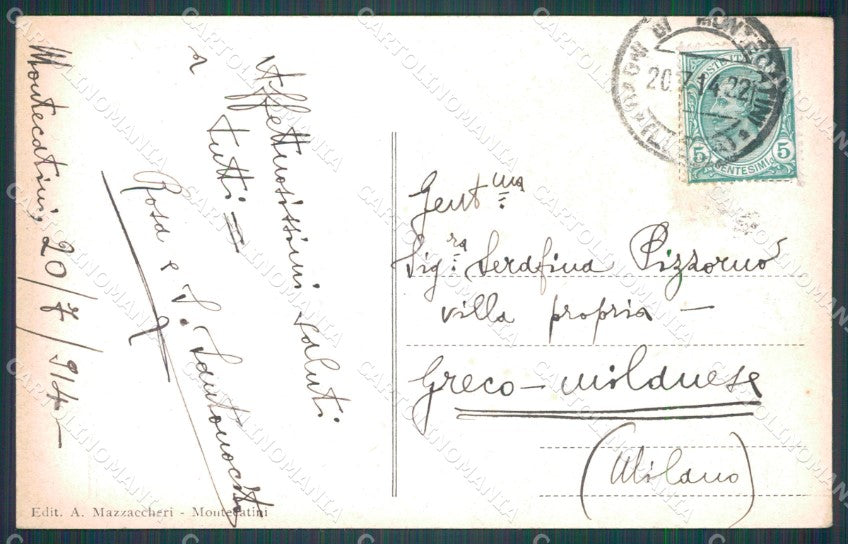 Montecatini, 20/7/914 -
Affettuosissimi saluti
a tutti -
Rosa e
Gent.ma
Sig.ra Serafina Pizzorno
villa propria -
Greco-milanese
(Milano)
BAGNI DI MONTECATINI
20.7.14.22
5 5
CENTESIMI
Edit. A. Mazzaccheri - Montecatini
CARTOLINOMANIA